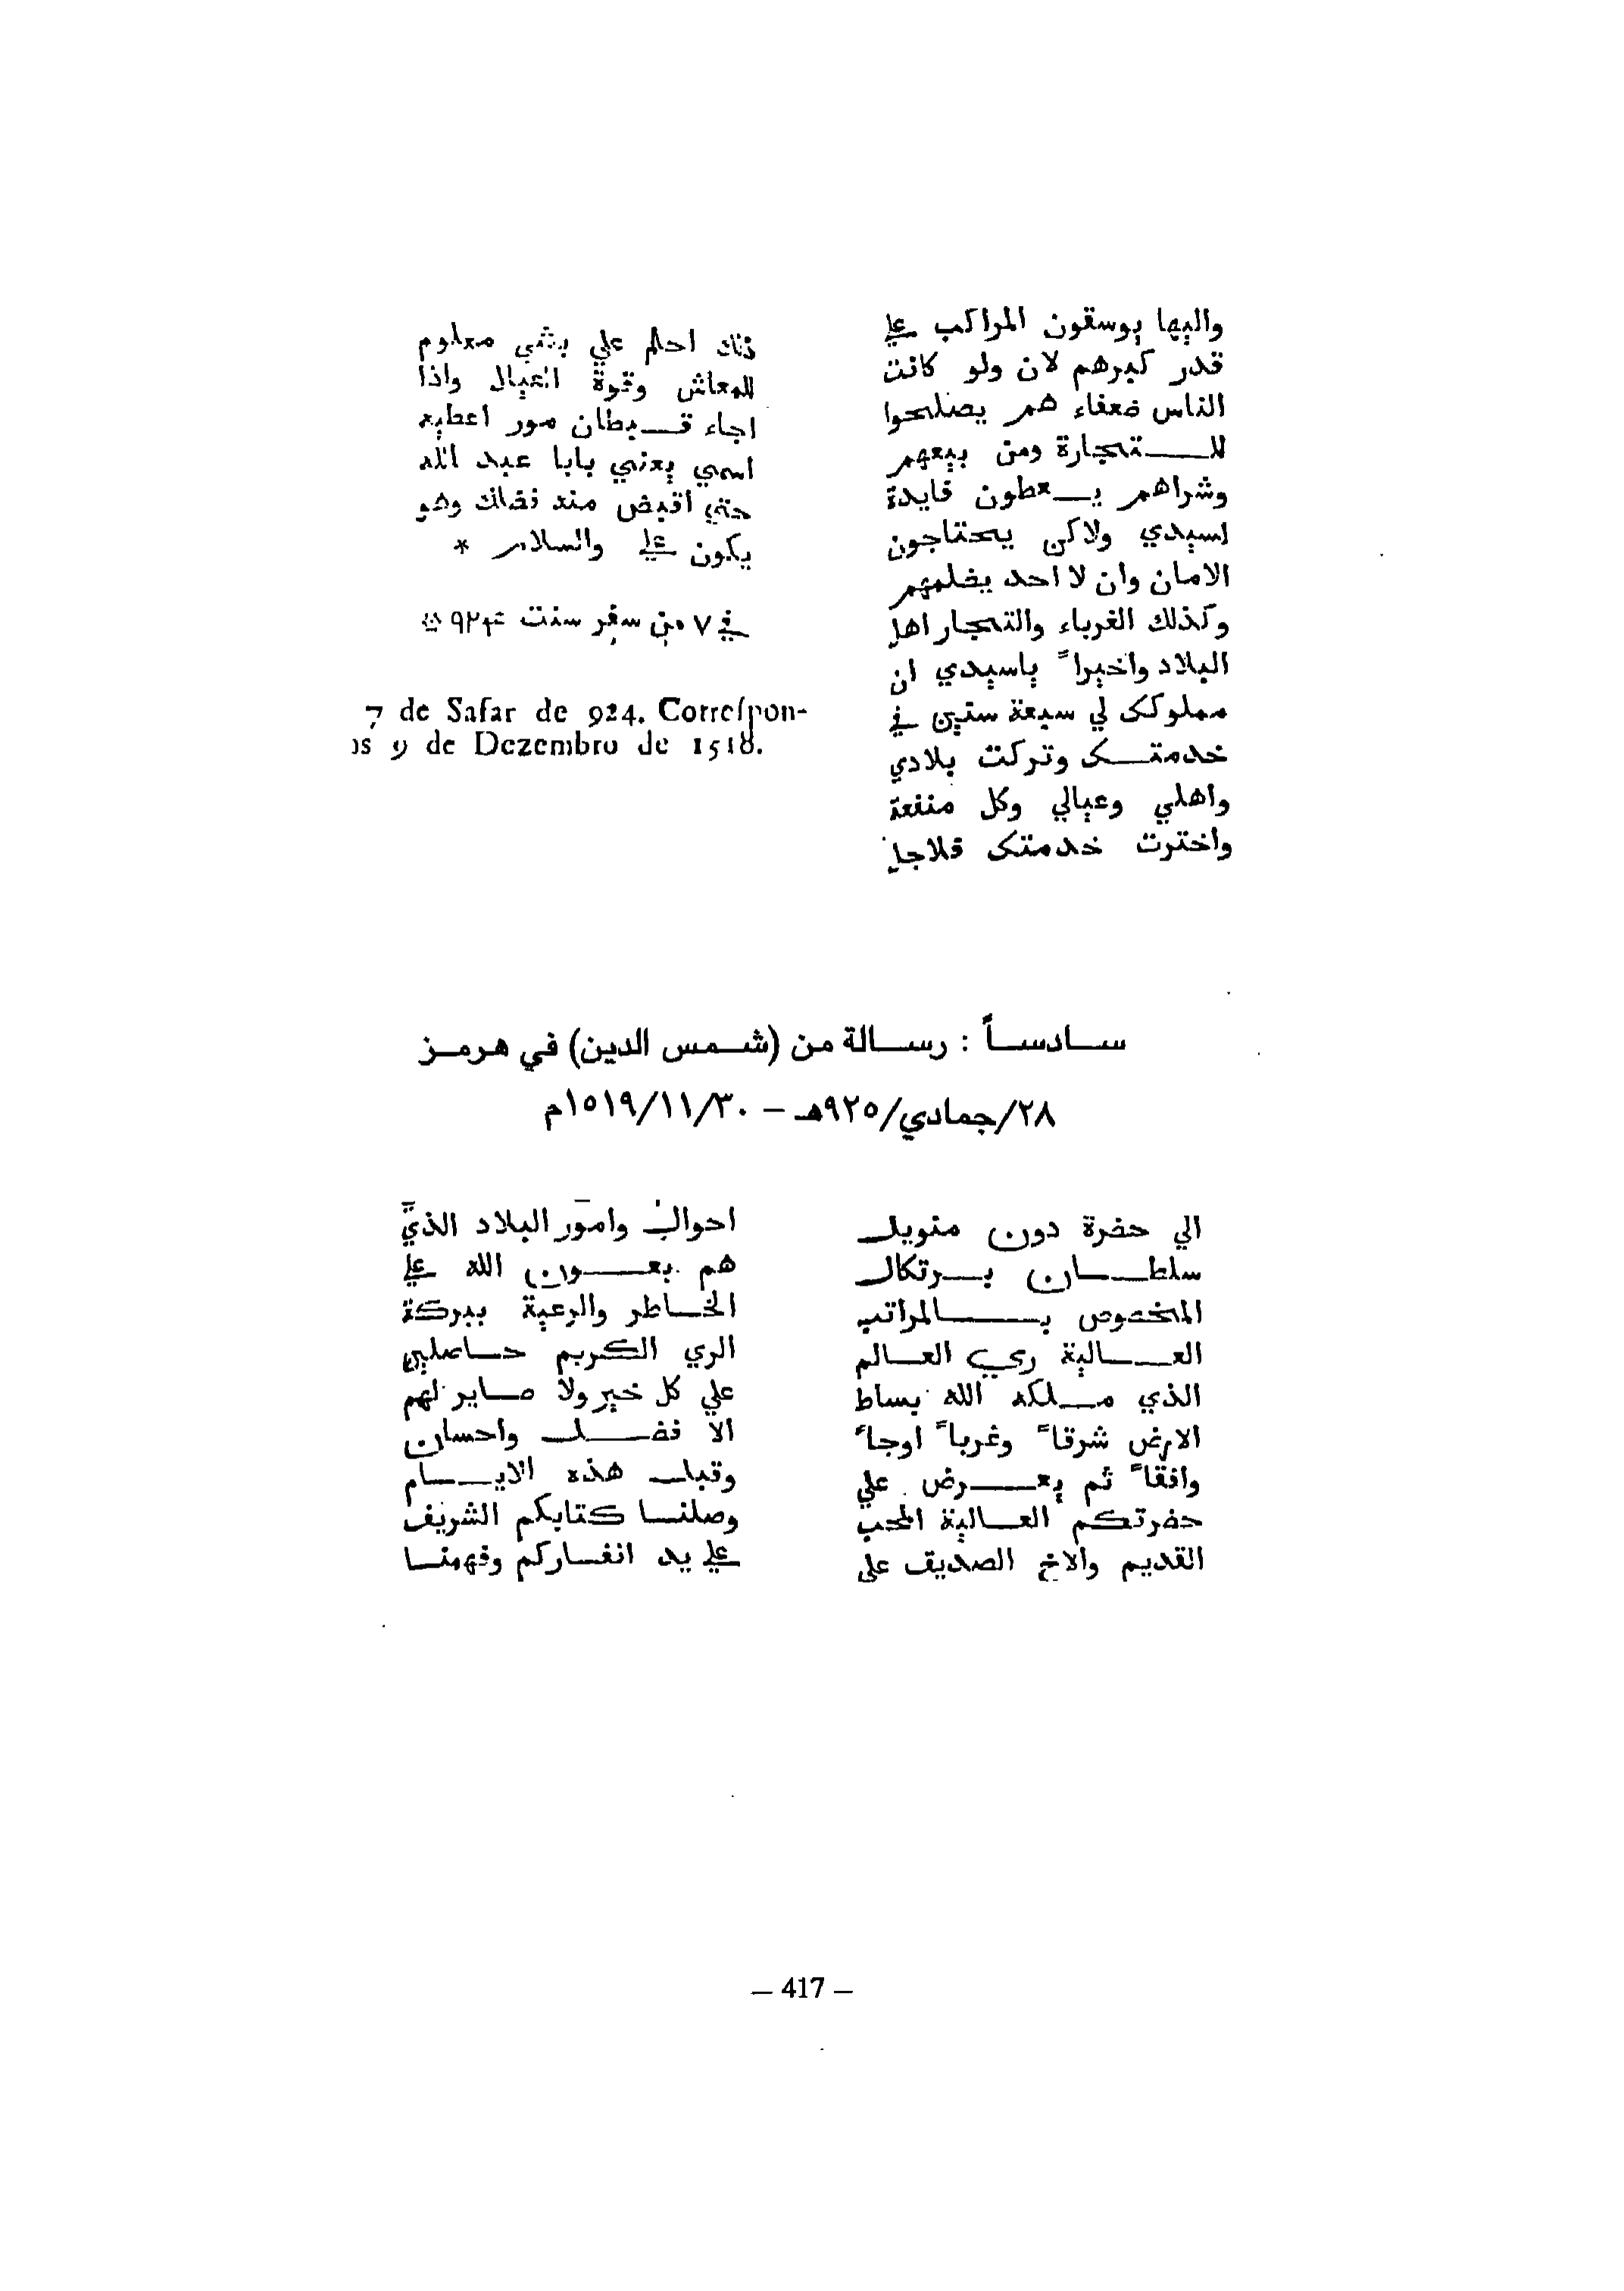 واليها يوسقون المراكب علي
قدر كبرهم لان ولو كانت
الناس ضعفاء هم يصلحوا
للـتجارة ومن بيعهم
وشراهم يـعطون فايدة
لسيدي ولاكن يحتاجون
الامان وان لا احد يضلمهم
وكذلك الغرباء والتجار اهل
البلاد واخيرا ياسيدي ان
مملوكك لي سبعة سنين في
خدمتـك وتركت بلادي
واهلي وعيالي وكل منفعة
واخترت خدمتك فلاجل
ذلك احلم علي بشي معلوم
للمعاش وقوة العيال واذا
اجاء قـبطان مور اعطيه
اسمي يعني بابا عبد الله
حتي اقبض منه فضلك وهو
يكون علي والسلام *
في ٧ من سفر سنت ٩٢۴
7 de Safar de 924. Correſpon-
os 9 de Dezembro de 1518.
سـادسـاً : رسـالة من (شـمس الدين) في هـرمـز
٢٨/جمادي/٩٢٥هـ – ١٥١٩/١١/٣٠م
الي حضرة دون منويل
سلطـان بـرتكال
المخصوص بـالمراتب
العـالية ري العـالم
الذي مـلكه الله بساط
الارض شرقاً وغرباً اوجاً
وافقاً ثم يعـرض علي
حضرتكم العـالية المحب
القديم والاخ الصديق علي
احوال وامور البلاد الذي
هم بعـون الله علي
الخـاطر والرعية ببركة
الري الكريم حـاصلين
علي كل خير ولا صـاير لهم
الا فضـل واحسان
وقبل هذه الايـام
وصلنـا كتابكم الشريف
علي يد انفـاركم وفهمنـا
– 417 –